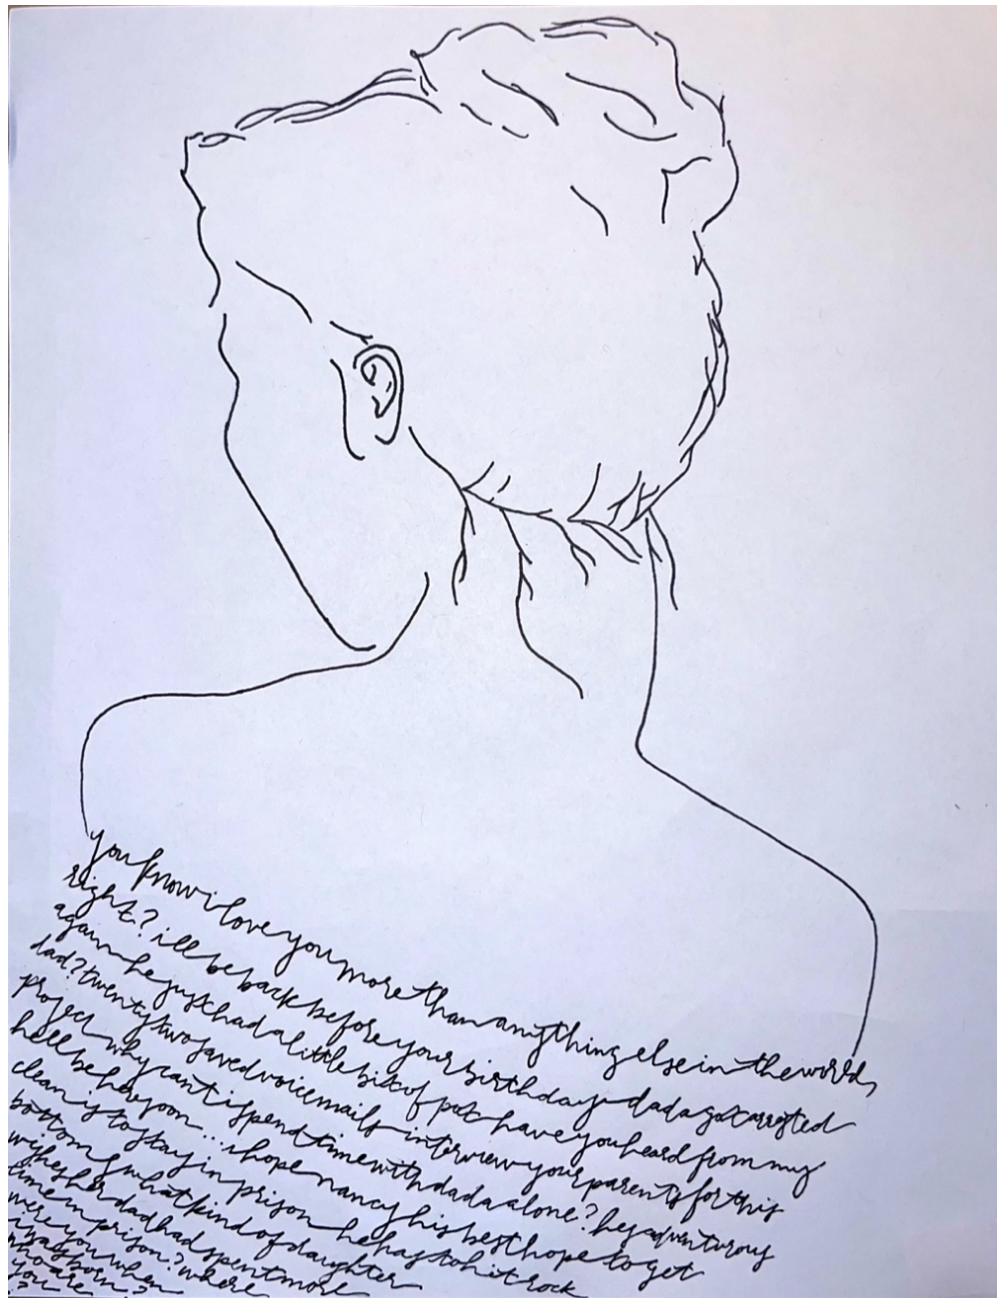 you know i love you more than anything else in the world,
right? ill be back before your birthday dada got arrested
again he just had a little bit of pot have you heard from my
dad? twenty two saved voicemails interview your parents for this
project why cant i spend time with dada alone? hes adventurous
hell be here soon... i hope nancy his best hope to get
clean is to stay in prison he has to hit rock
bottom & what kind of daughter
wishes her dad had spent more
time in prison? where
were you when
i was born?
who are
you
?